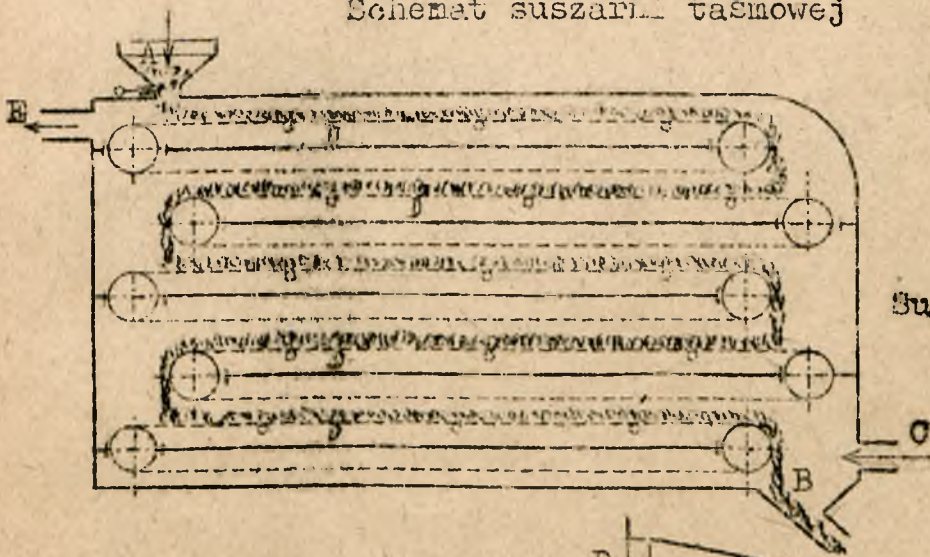 Schemat suszarni taśmowej
A
E
Su
C
B